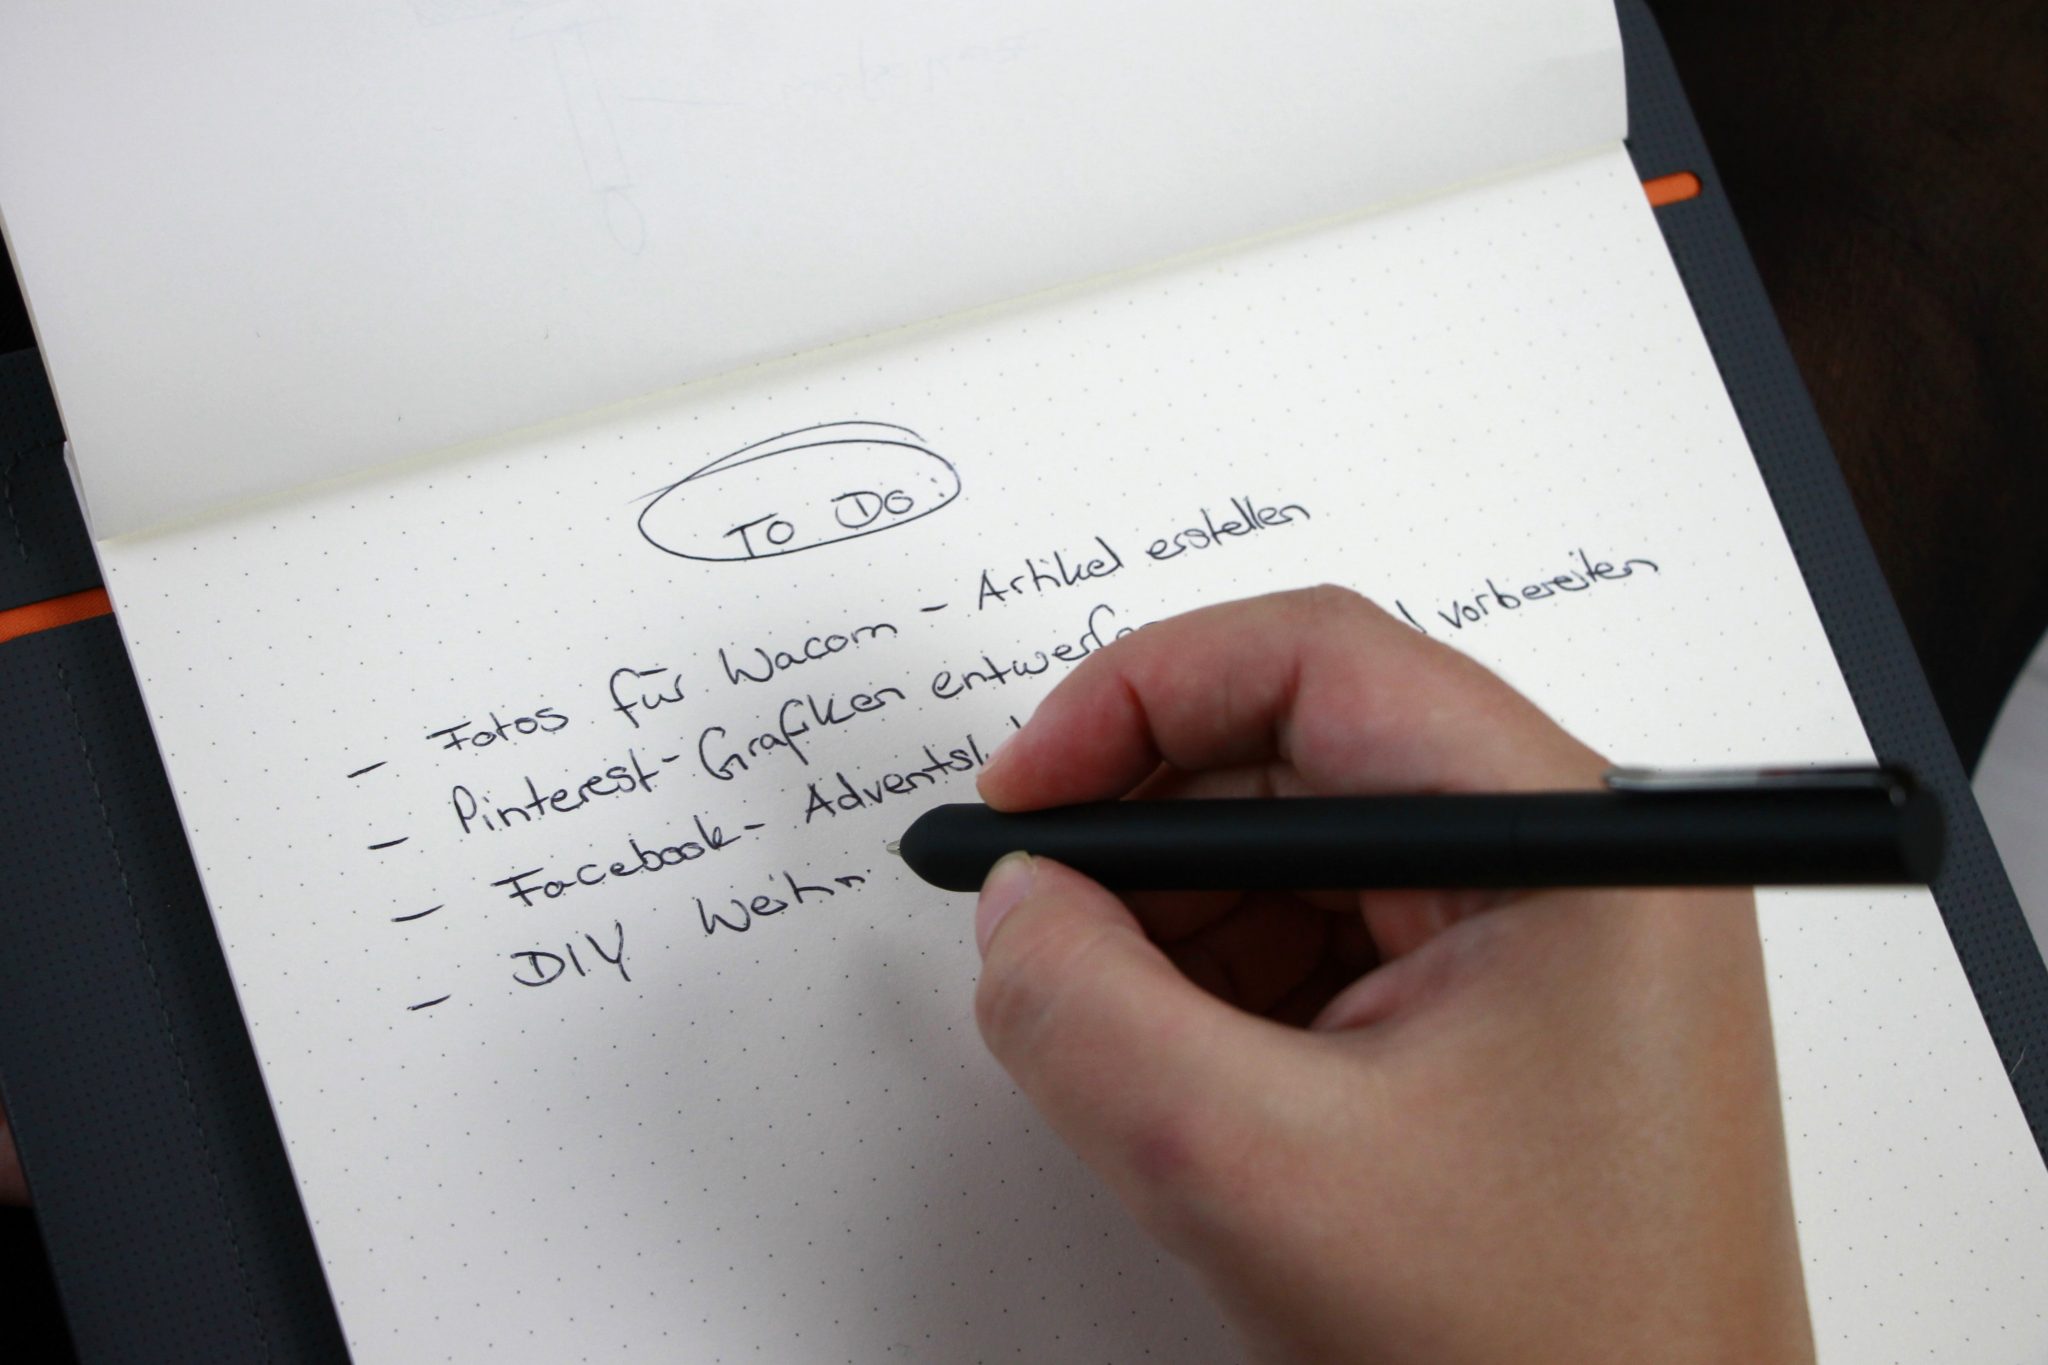 To Do:
- Fotos für Wacom - Artikel erstellen
- Pinterest-Grafiken entwerfen vorbereiten
- Facebook-
- DIY Weihn